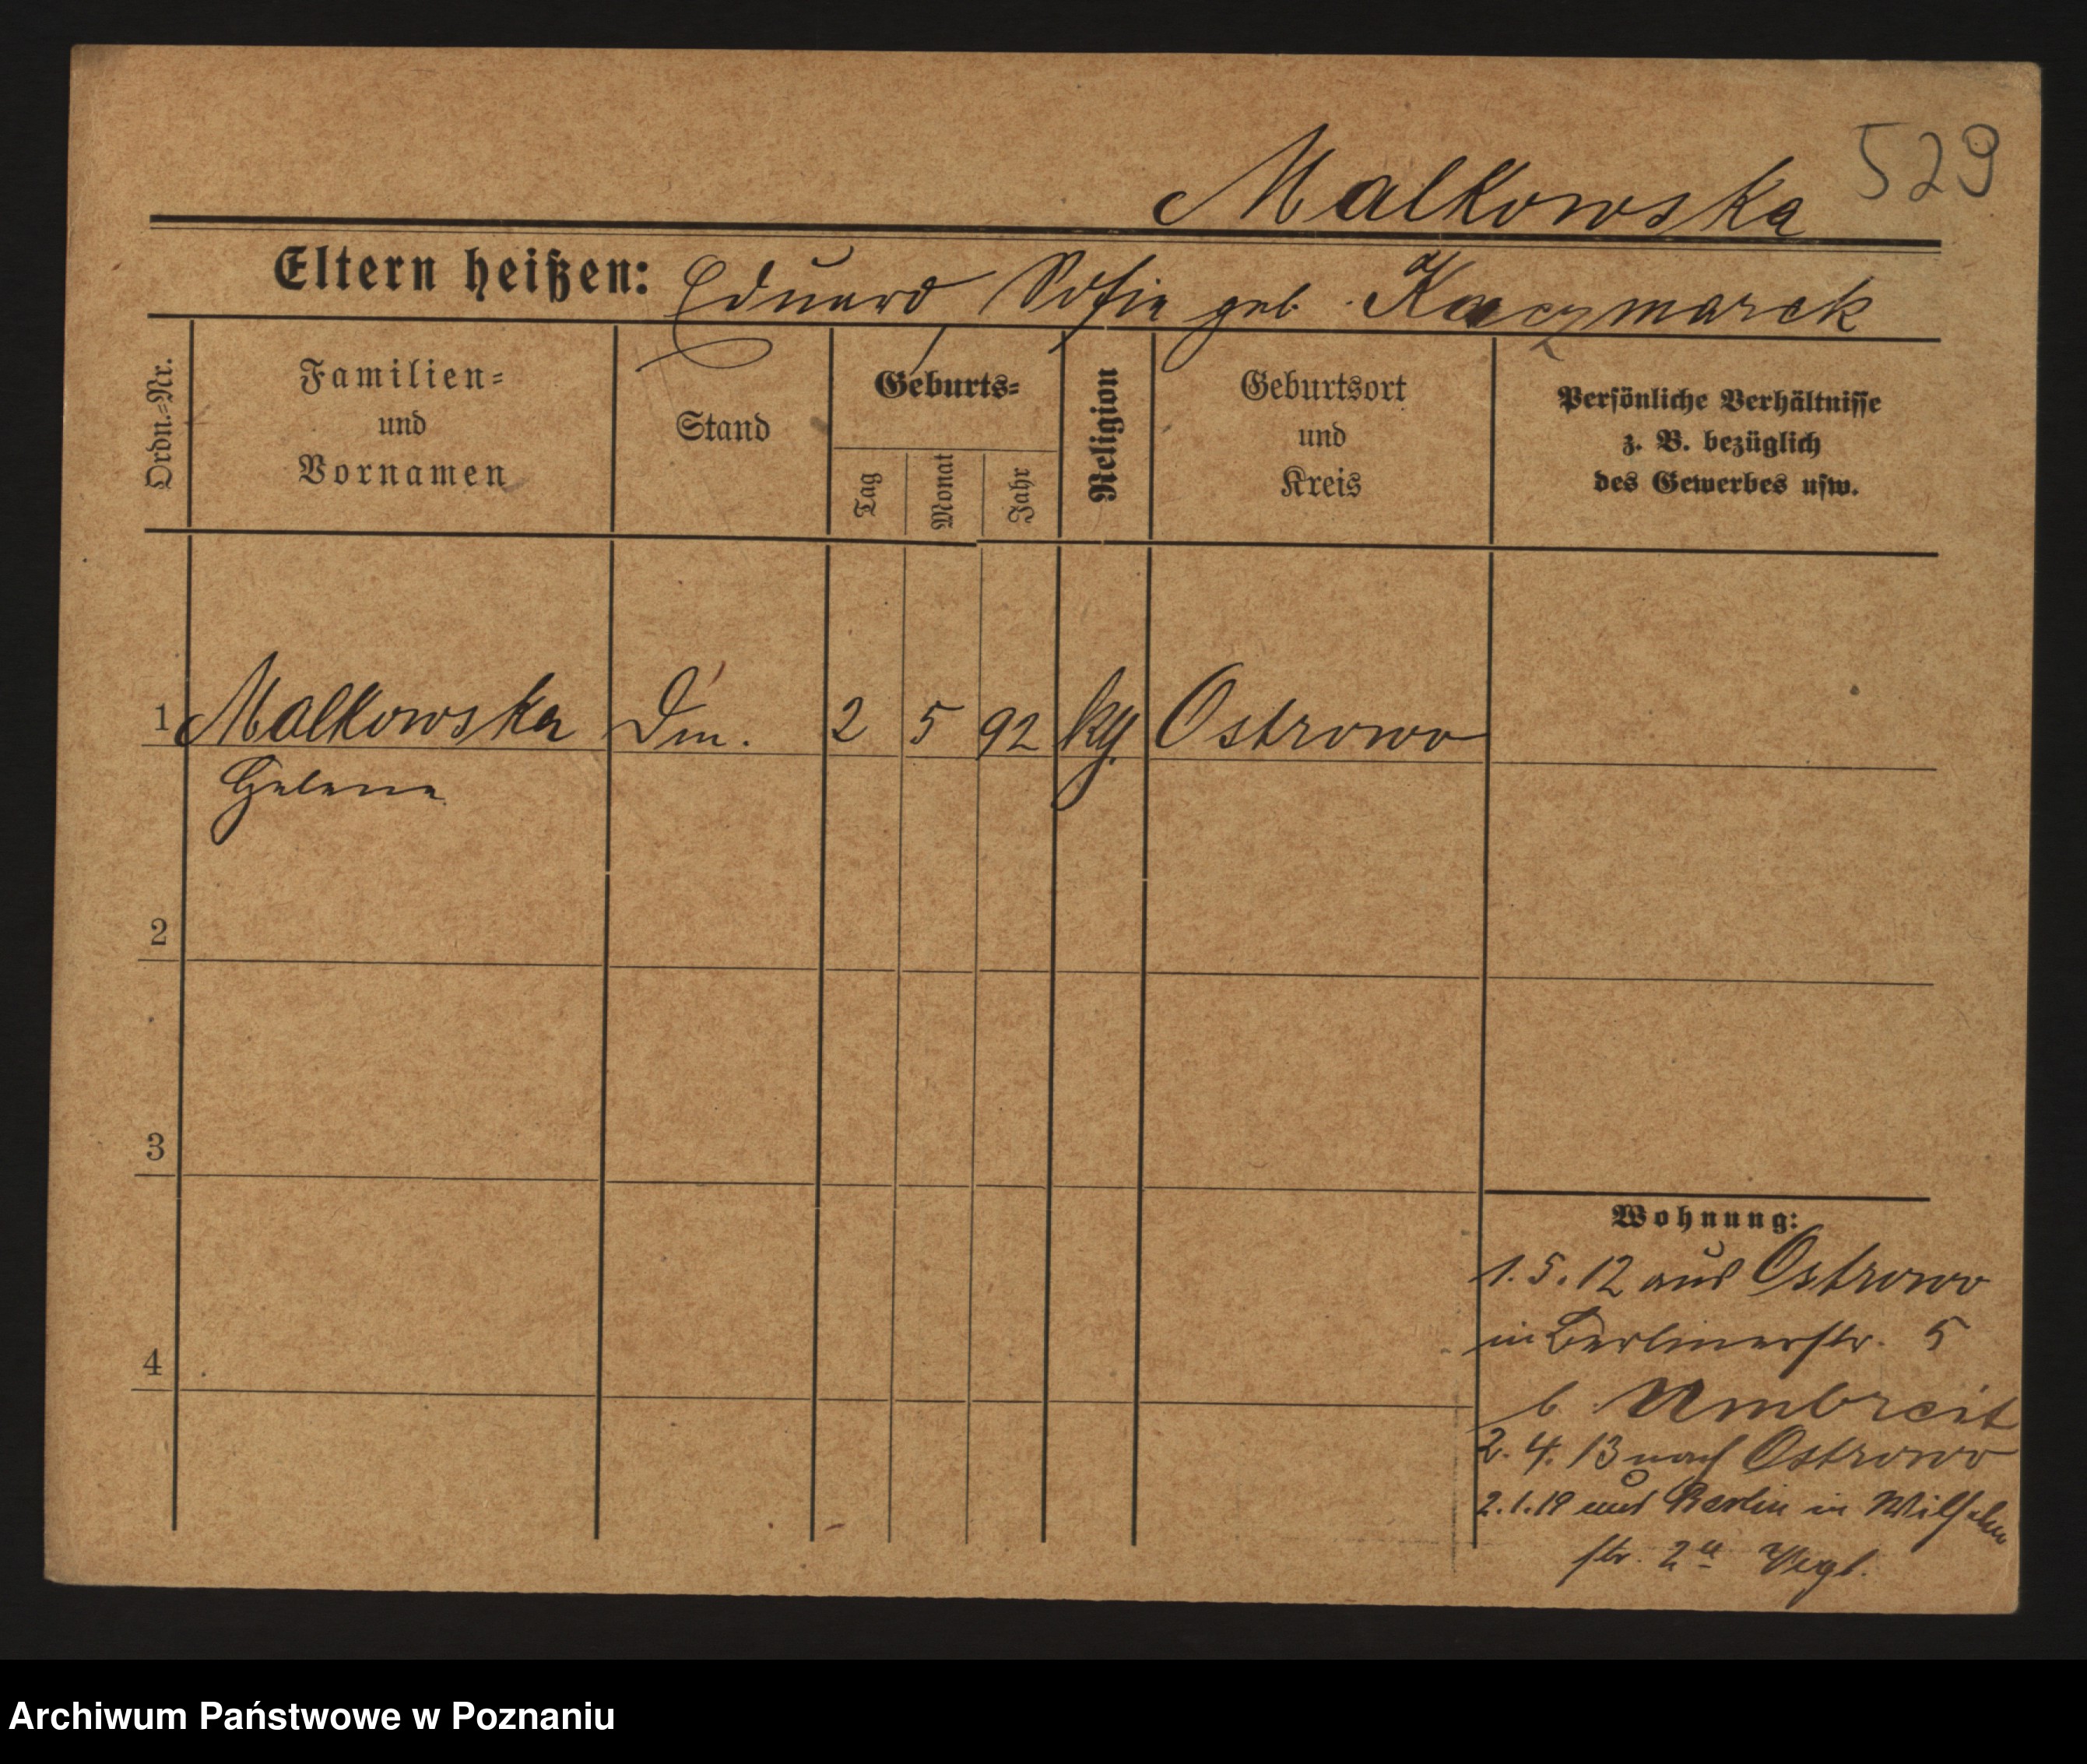 529
Malkowska
Eltern heißen: Eduard Sofia geb. Kaczmarek
Ordn.=Nr.
Familien=
und
Vornamen
Stand
Geburts=
Tag
Monat
Jahr
Religion
Geburtsort
und
Kreis
Persönliche Verhältnisse
z. B. bezüglich
des Gewerbes usw.
1 Malkowska 2 5 92 Ostrowo
Helene
2
3
4
Wohnung:
1.5.12 aus Ostrowo
in Berlinerstr. 5
b. Umbreit
2.4.13 nach Ostrowo
2.1.19 aus Berlin in Wilhelm
str. 2a
Archiwum Państwowe w Poznaniu